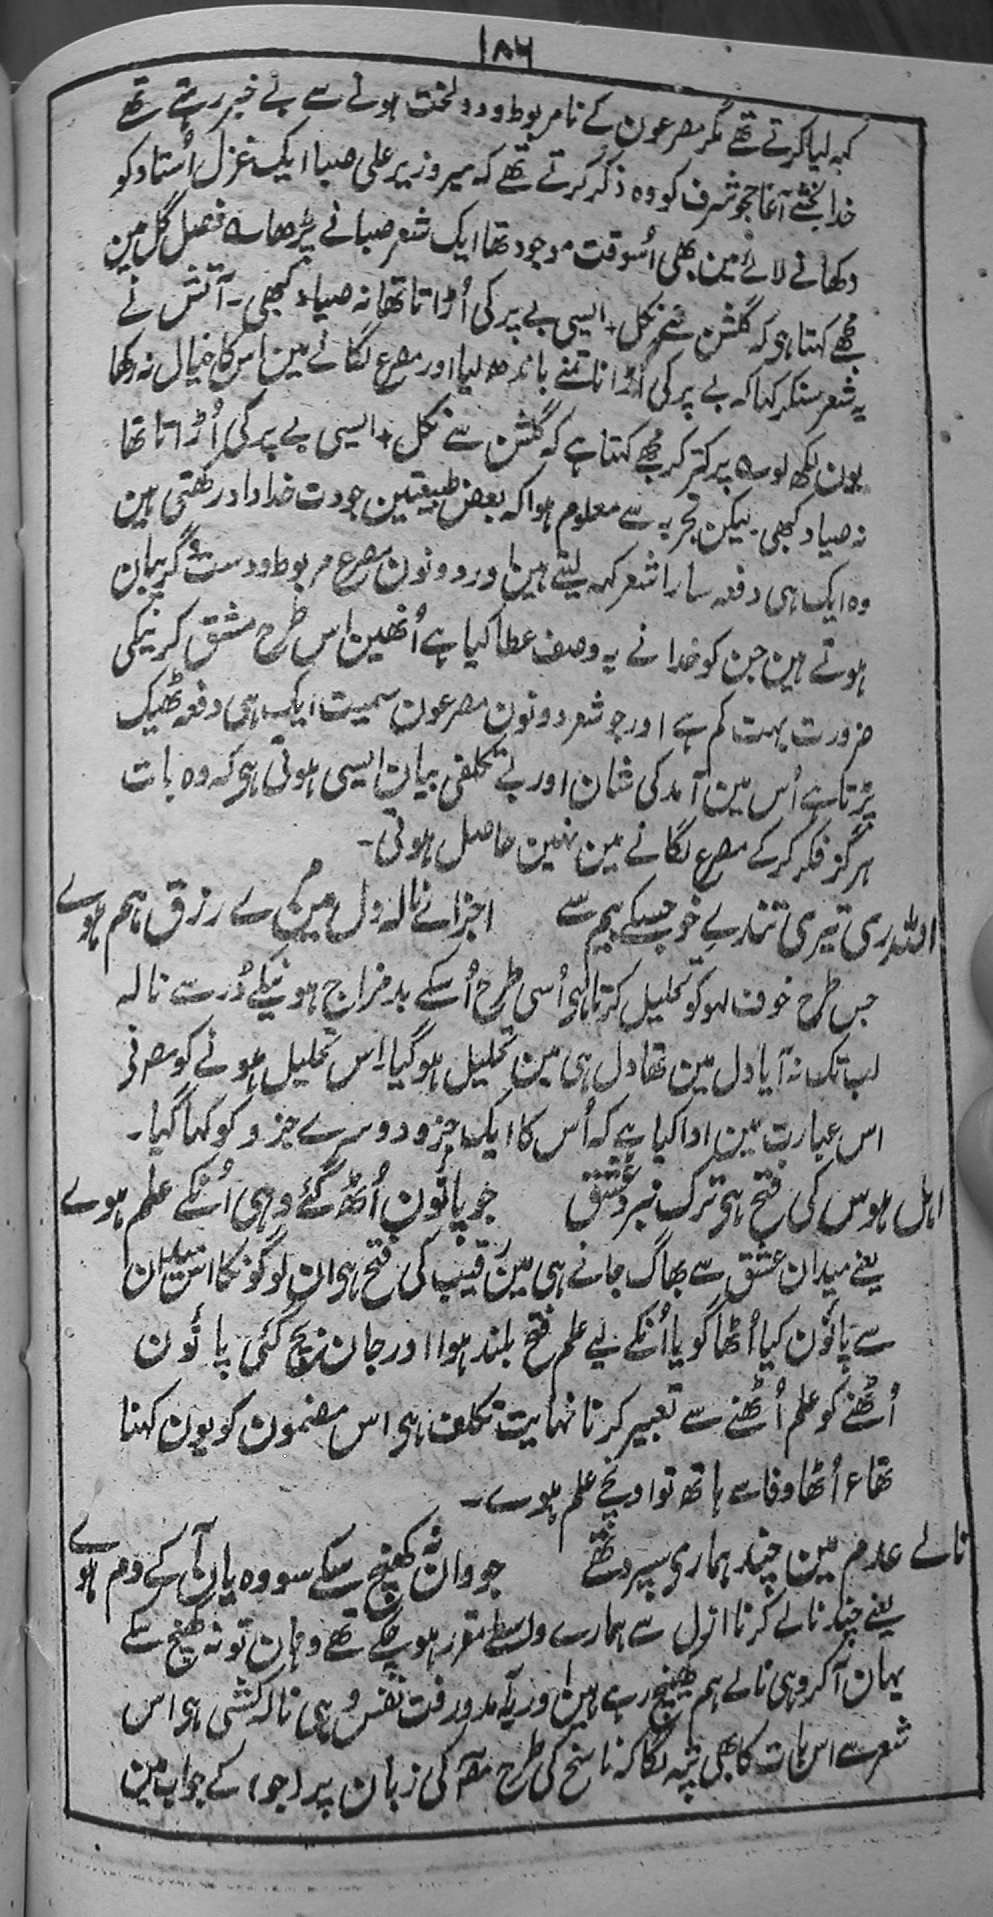 ۱۸۶
کہہ لیا کرتے تھے مگر مصرعون کے نامربوط و دولخت ہونے سے بے خبر رہتے تھے
خدا بخشے آغا حجو شرف کو وہ ذکر کرتے تھے کہ میر وزیر علی صبا ایک غزل اُستاد کو
دکھانے لائے مین بھی اُسوقت موجود تھا ایک شعر صبا نے پڑھا ؎ فصل گل مین
مجھے کہتا ہی کہ گلشن سے نکل + ایسی بے پر کی اُڑاتا تھا نہ صیاد کبھی ۔ آتش نے
یہ شعر سنکر کہا کہ بے پر کی اُڑانا تمنے باندھ لیا اور مصرع لگانے مین اس کا خیال نہ رکھا
یون لکھ لو ؎ پر کتر کر مجھے کہتا ہے کہ گلشن سے نکل + ایسی بے پر کی اُڑاتا تھا
نہ صیاد کبھی۔ لیکن تجربہ سے معلوم ہوا کہ بعض طبیعتین جودت خداداد رکھتی ہین
وہ ایک ہی دفعہ سارا شعر کہہ لیتے ہین اور دونون مصرع مربوط و دست و گریبان
ہوتے ہین جن کو خدا نے یہ وصف عطا کیا ہے اُنھین اس طرح مشق کرنیکی
ضرورت بہت کم ہے اور جو شعر دونون مصرعون سمیت ایک ہی دفعہ ٹھیک
پڑتا ہے اُس مین آمد کی شان اور بے تکلفی بیان ایسی ہوتی ہی کہ وہ بات
ہرگز فکر کرکے مصرع لگانے مین نہین حاصل ہوتی۔
اللہ ری تیری تندیِ خو جسکے بیم سے اجزائے نالہ دل مین مرے رزق ہم ہوے
جس طرح خوف لہو کو تحلیل کرتا ہی اُسی طرح اُسکے بدمزاج ہونیکے ڈر سے نالہ
لب تک نہ آیا دل مین تھا دل ہی مین تحلیل ہو گیا اِس تحلیل ہونے کو مصرفی
اس عبارت مین ادا کیا ہے کہ اُس کا ایک جزو دوسرے جزو کو کھا گیا۔
اہل ہوس کی فتح ہی ترک نبرد عشق جو پاؤن اُٹھ گئے وہی اُنکے علم ہوے
یعنے میدان عشق سے بھاگ جانے ہی مین رقیب کی فتح ہی ان لوگونکا اس میدان
سے پاؤن کیا اُٹھا گویا اُنکے لیے علم فتح بلند ہوا اور جان بچ گئی پاؤن
اُٹھنے کو علم اُٹھنے سے تعبیر کرنا نہایت تکلف ہی اس مضمون کو یون کہنا
تھا ع اُٹھا وفا سے ہاتھ تو اونچے علم ہوے۔
نالے عدم مین چند ہماری سپرد تھے جو وان نہ کھنچ سکے سو وہ یان آ کے دم ہوے
یعنے چند نالے کرنا ازل سے ہمارے واسطے مقرر ہو چکے تھے وہان تو نہ کھنچ سکے
یہان آکر وہی نالے ہم کھینچ رہے ہین اور یہ آمد و رفت نفس وہی نالہ کشی ہی اس
شعر سے اس بات کا بھی پتہ لگا کہ ناسخ کی طرح مصنف کی زبان پر (جو) کے جواب مین